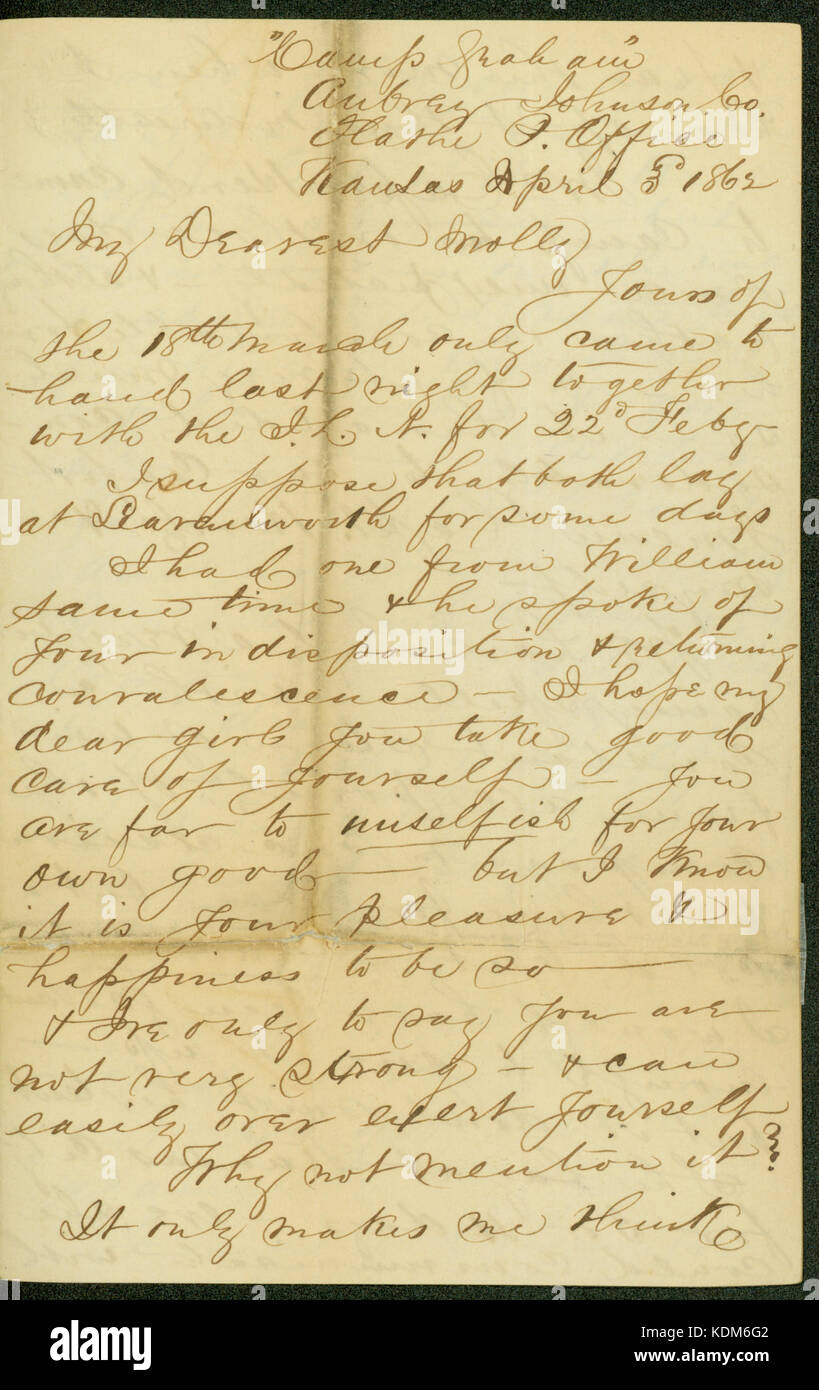 "Camp Graham"
Aubrey Johnson Co.
Olathe P. Office
Kansas April 3d 1862
My Dearest Molly
Yours of
the 18th March only came to
hand last night together
with the I. L. N. for 22d Feby
I suppose that both lay
at Leavenworth for some days
I had one from William
same time & he spoke of
your indisposition & returning
convalescence – I hope my
dear girl you take good
care of yourself – you
are far to unselfish for your
own good – but I know
it is your pleasure &
happiness to be so –
& I've only to say you are
not very strong – & can
easily over exert yourself
Why not mention it?
It only makes me think
a
alamy
alamy
a
a
alamy
Image ID: KDM6G2
www.alamy.com